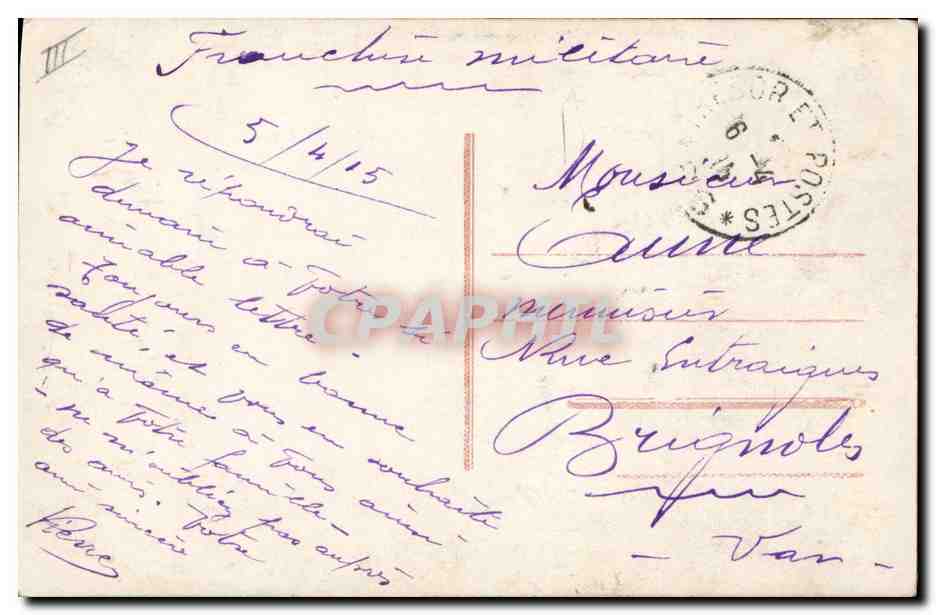 III
Franchise militaire
TRESOR ET POSTES *
5/4/15
Je répondrai
demain à Votre
aimable lettre -
Toujours en bonne
santé, et vous en souhaite
de même à vous ainsi
qu'à Votre famille -
ne m'oubliez pas auprès
des amis. Votre
ami sincère
Pierre
Monsieur
Aune
menuisier
Rue Entraigues
Brignoles
- Var -
CPAPHIL